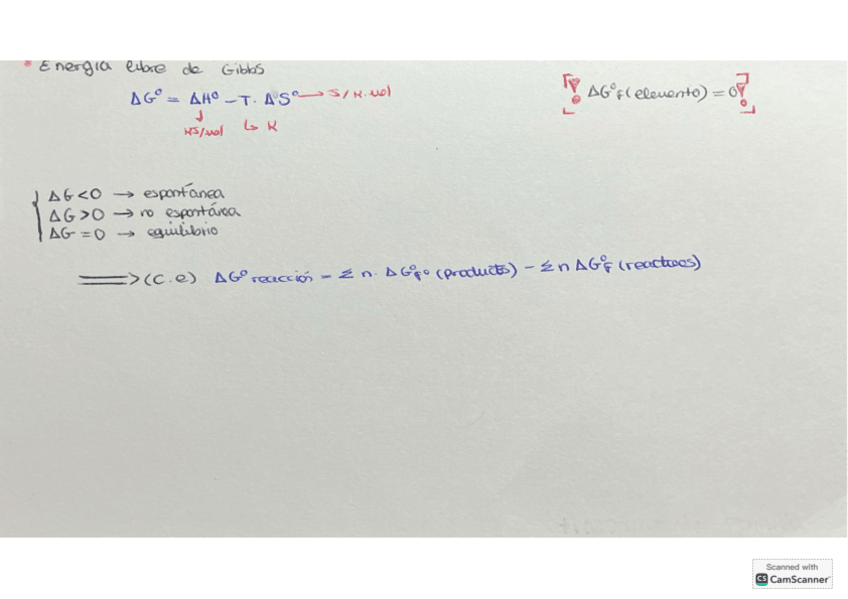 * Energía libre de Gibbs
ΔG° = ΔH° - T. ΔS° → J/K.mol
↓ KJ/mol ↳ K
¡ ΔG°f (elemento) = 0 !
ΔG<0 → espontánea
ΔG>0 → no espontánea
ΔG=0 → equilibrio
⇒ (c.e) ΔG° reacción = Σ n. ΔG°f° (products) - Σ n ΔG°f (reactivos)
Scanned with
CS CamScanner